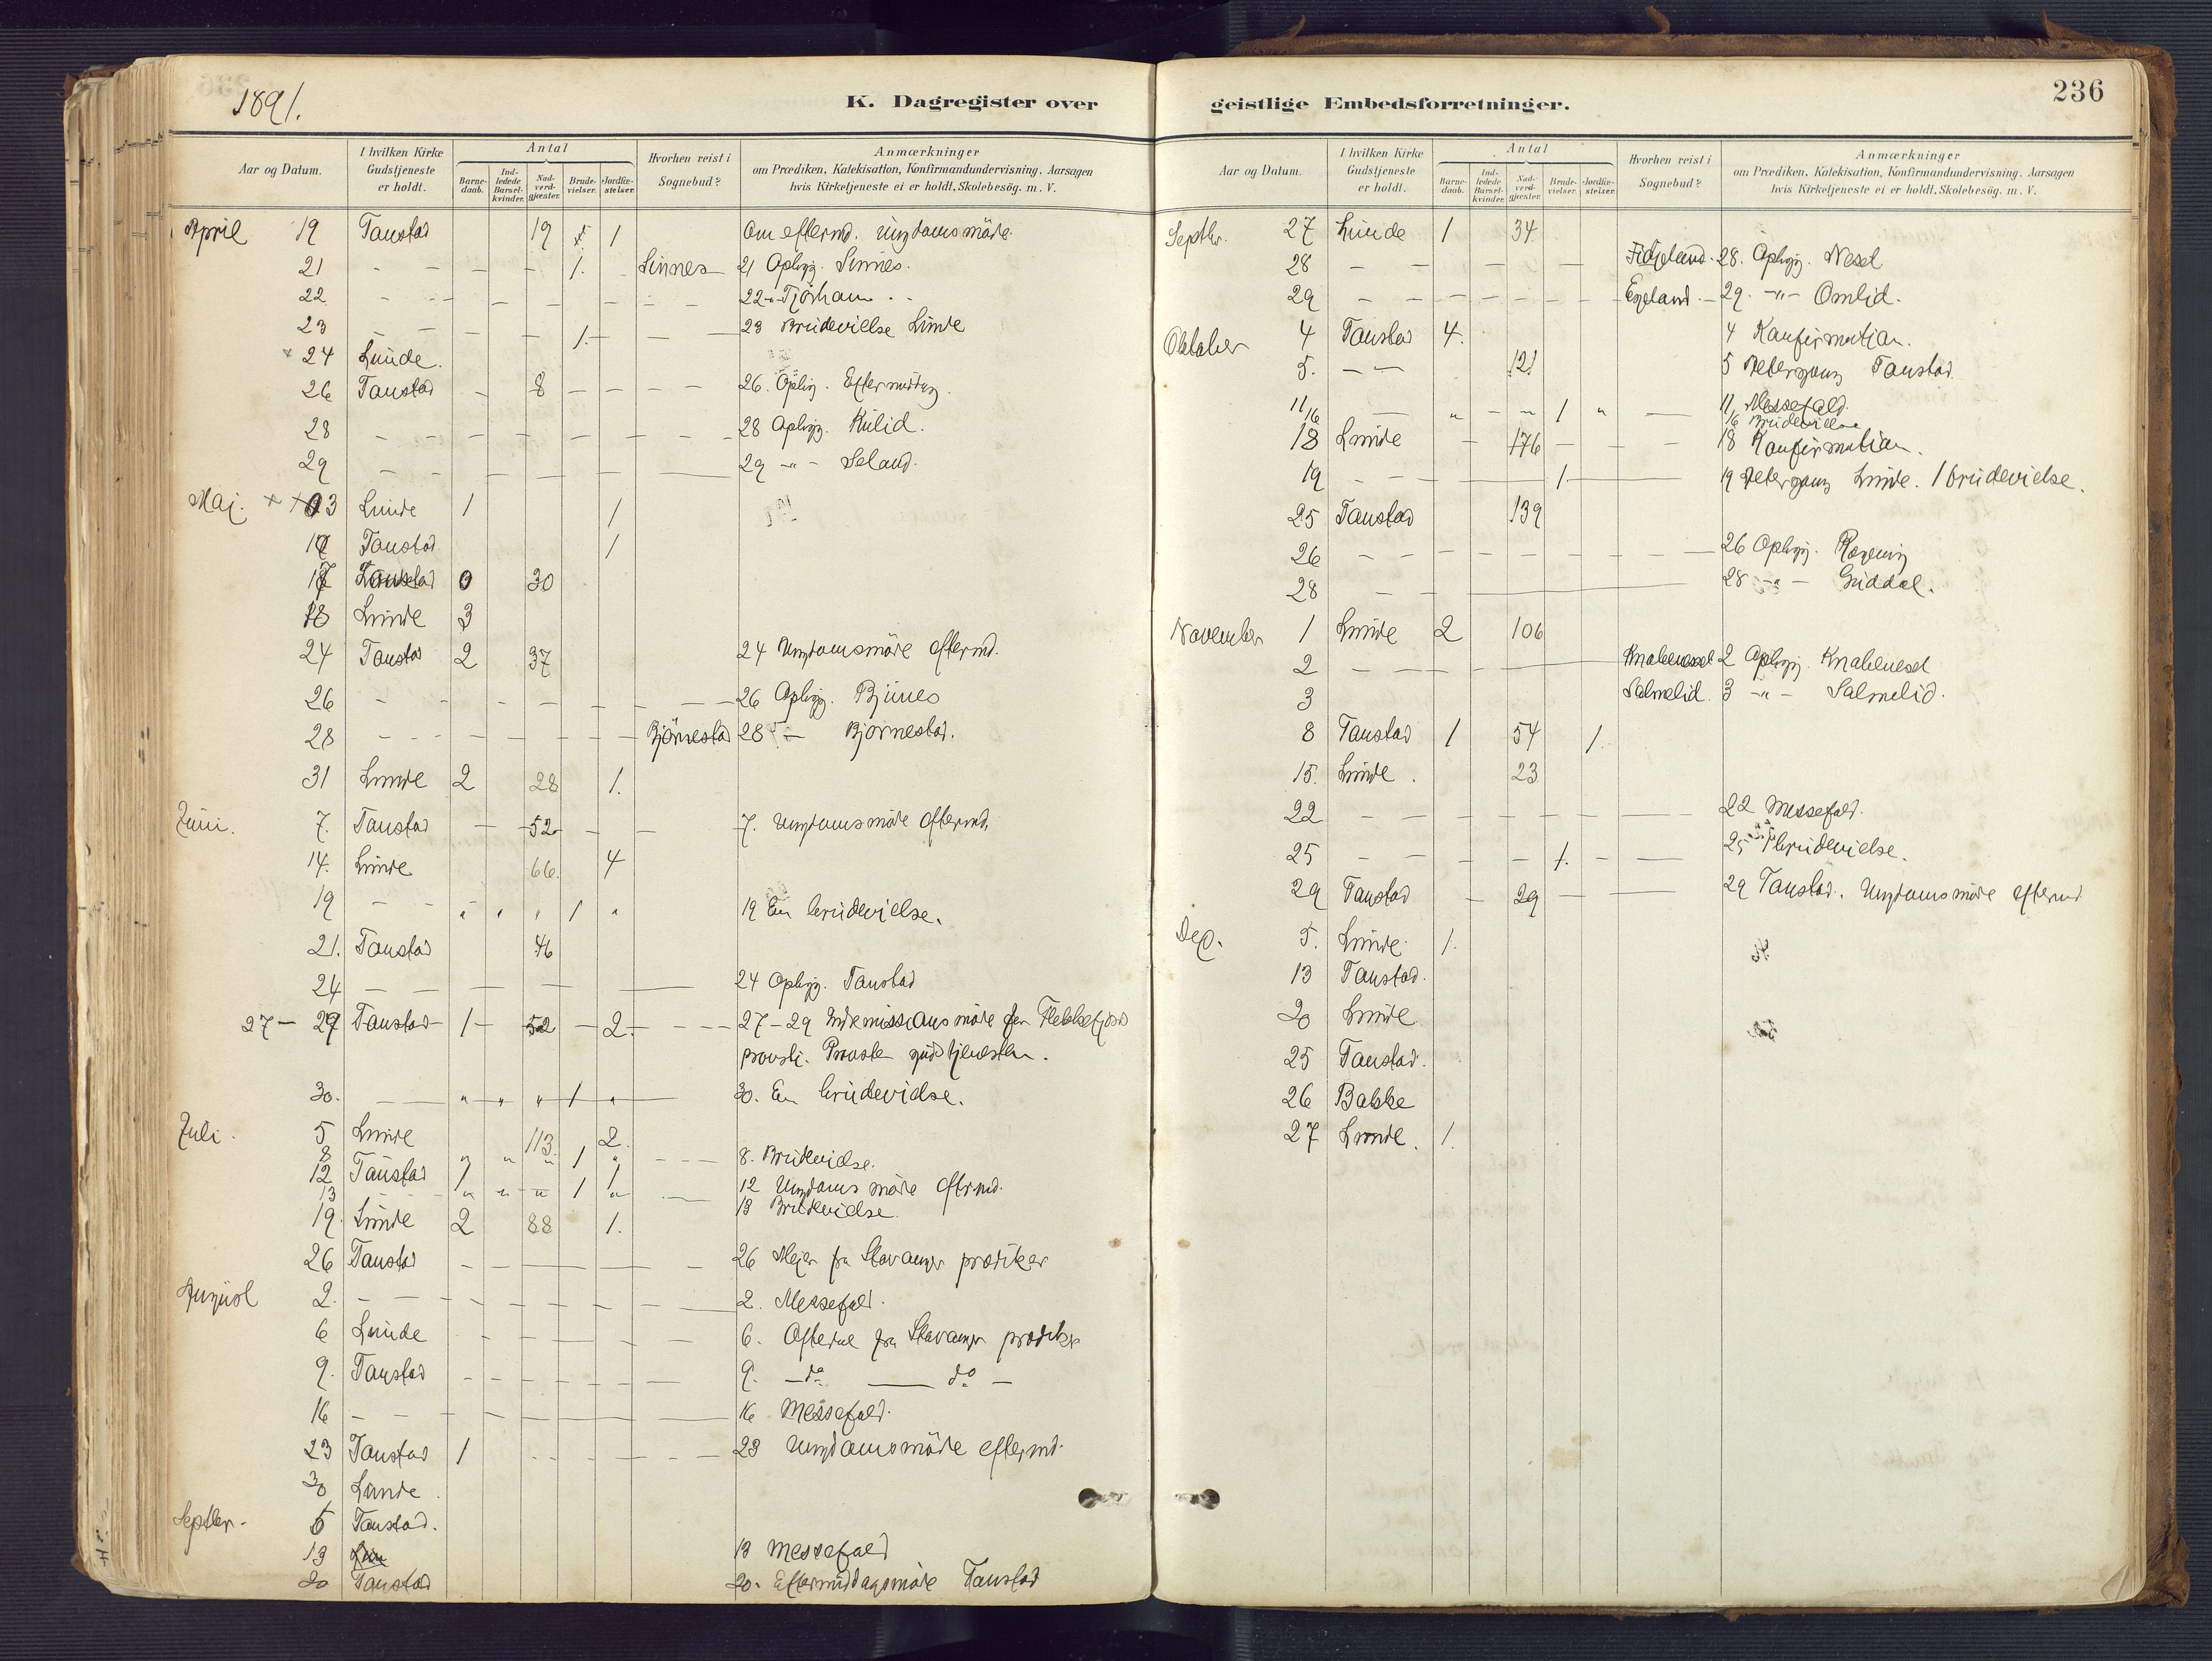 1891.
K. Dagregister over
Aar og Datum. I hvilken Kirke Gudstjeneste er holdt. Antal Barne-daab. Ind-ledede Barsel-kvinder. Nad-verd-gjæster. Brude-vielser. Jordfæ-stelser. Hvorhen reist i Sognebud? Anmærkninger om Prædiken, Katekisation, Konfirmandundervisning, Aarsagen hvis Kirketjeneste ei er holdt, Skolebesög. m. V.
April 19 Tonstad 19 1 Om eftermd. ungdomsmöde.
21 - - - - 1. Sinnes 21 Opbyg. Sinnes.
22 - - - - - - - 22 -"- Tjörham
23 - - - 1. - - 23 Brudevielse Lunde
24 Lunde.
26 Tonstad - 8 - - - - 26. Opbyg. Eftermiddag.
28 - - - - - - - 28 Opbyg. Kulid.
29 - - - - - 29 -"- Seland.
Maj. 3 Lunde 1 1
Tonstad 1
Tonstad 0 30
18 Lunde 3
24 Tonstad 2 37 24 Ungdomsmöde eftermd.
26 - - - - - - 26 Opbyg. Bjunes
28 - - - - - - Björnestad 28 -"- Bjornestad.
31 Lunde 2 28 1.
Juni. 7. Tonstad - 52 - - 7. Ungdomsmöde eftermd.
14. Lunde 66. 4
19 - - " " " 1 " 19 En brudevielse.
21. Tonstad 46
24 - - - - - 24 Opbyg. Tonstad
27 - 29 Tonstad 1 - 52 - 2. - - - 27-29 Indremissionsmöde for Flekkefjord
provsti. Provsten gudstjenesten.
30. - - " " " 1 " - 30. En brudevielse.
Juli. 5 Lunde 113. 2.
8 " " " 1 " - - - 8. Brudevielse.
12 Tonstad 1 1 12 Ungdomsmöde eftrmd.
13 " " " 1 " - 13 Brudevielse.
19. Lunde 2 88 1.
26 Tonstad - - - - - 26 Mejer fra Stavanger prædiker
August 2. - - - - - - 2. Messefald.
6 Lunde - - - - - 6. Oftedal fra Stavanger prædiker
9. Tonstad - - - - - - 9. - do - do -
16 - - - - - - 16 Messefald.
23 Tonstad 1 - - - - - 23 Ungdomsmöde eftermd.
30 Lunde.
Septbr. 6 Tonstad.
13 13 Messefald
20 Tonstad 20. Eftermiddagsmöde Tonstad
geistlige Embedsforretninger.
236
Aar og Datum. I hvilken Kirke Gudstjeneste er holdt. Antal Barne-daab. Ind-ledede Barsel-kvinder. Nad-verd-gjæster. Brude-vielser. Jordfæ-stelser. Hvorhen reist i Sognebud? Anmærkninger om Prædiken, Katekisation, Konfirmandundervisning, Aarsagen hvis Kirketjeneste ei er holdt, Skolebesög. m. V.
Septbr. 27 Lunde 1 34
28 - - - - - - Fidjeland. 28. Opbyg. Neset
29 - - - - - - Egeland. - 29. -"- Omlid.
Oktober 4 Tonstad 4. 4 Konfirmation.
5. - - 121 5 Altergang Tonstad
11/16 - " - " 1 " - 11 Messefald.
16 Brudevielse
18 Lunde - 176 - - - 18 Konfirmation.
19 - - - 1. - 19 Altergang Lunde. 1 brudevielse.
25 Tonstad 139
26 - - - - - - - 26 Opbyg. Rögening
28 - - - 28 -"- Guddal.
November 1 Lunde 2 106
2 - - - - Knabeneset 2 Opbyg. Knabeneset
3 Salmelid. 3 -"- Salmelid.
8 Tonstad 1 54 1.
15. Lunde. 23
22 - - - - - - - 22 Messefald.
25 - - - - 1. - - 25 1 brudevielse.
29 Tonstad - 29 - - 29 Tonstad. Ungdomsmöde eftermd
Dec. 5. Lunde 1.
13 Tonstad.
20 Lunde
25 Tonstad.
26 Bakke
27 Lunde. 1.